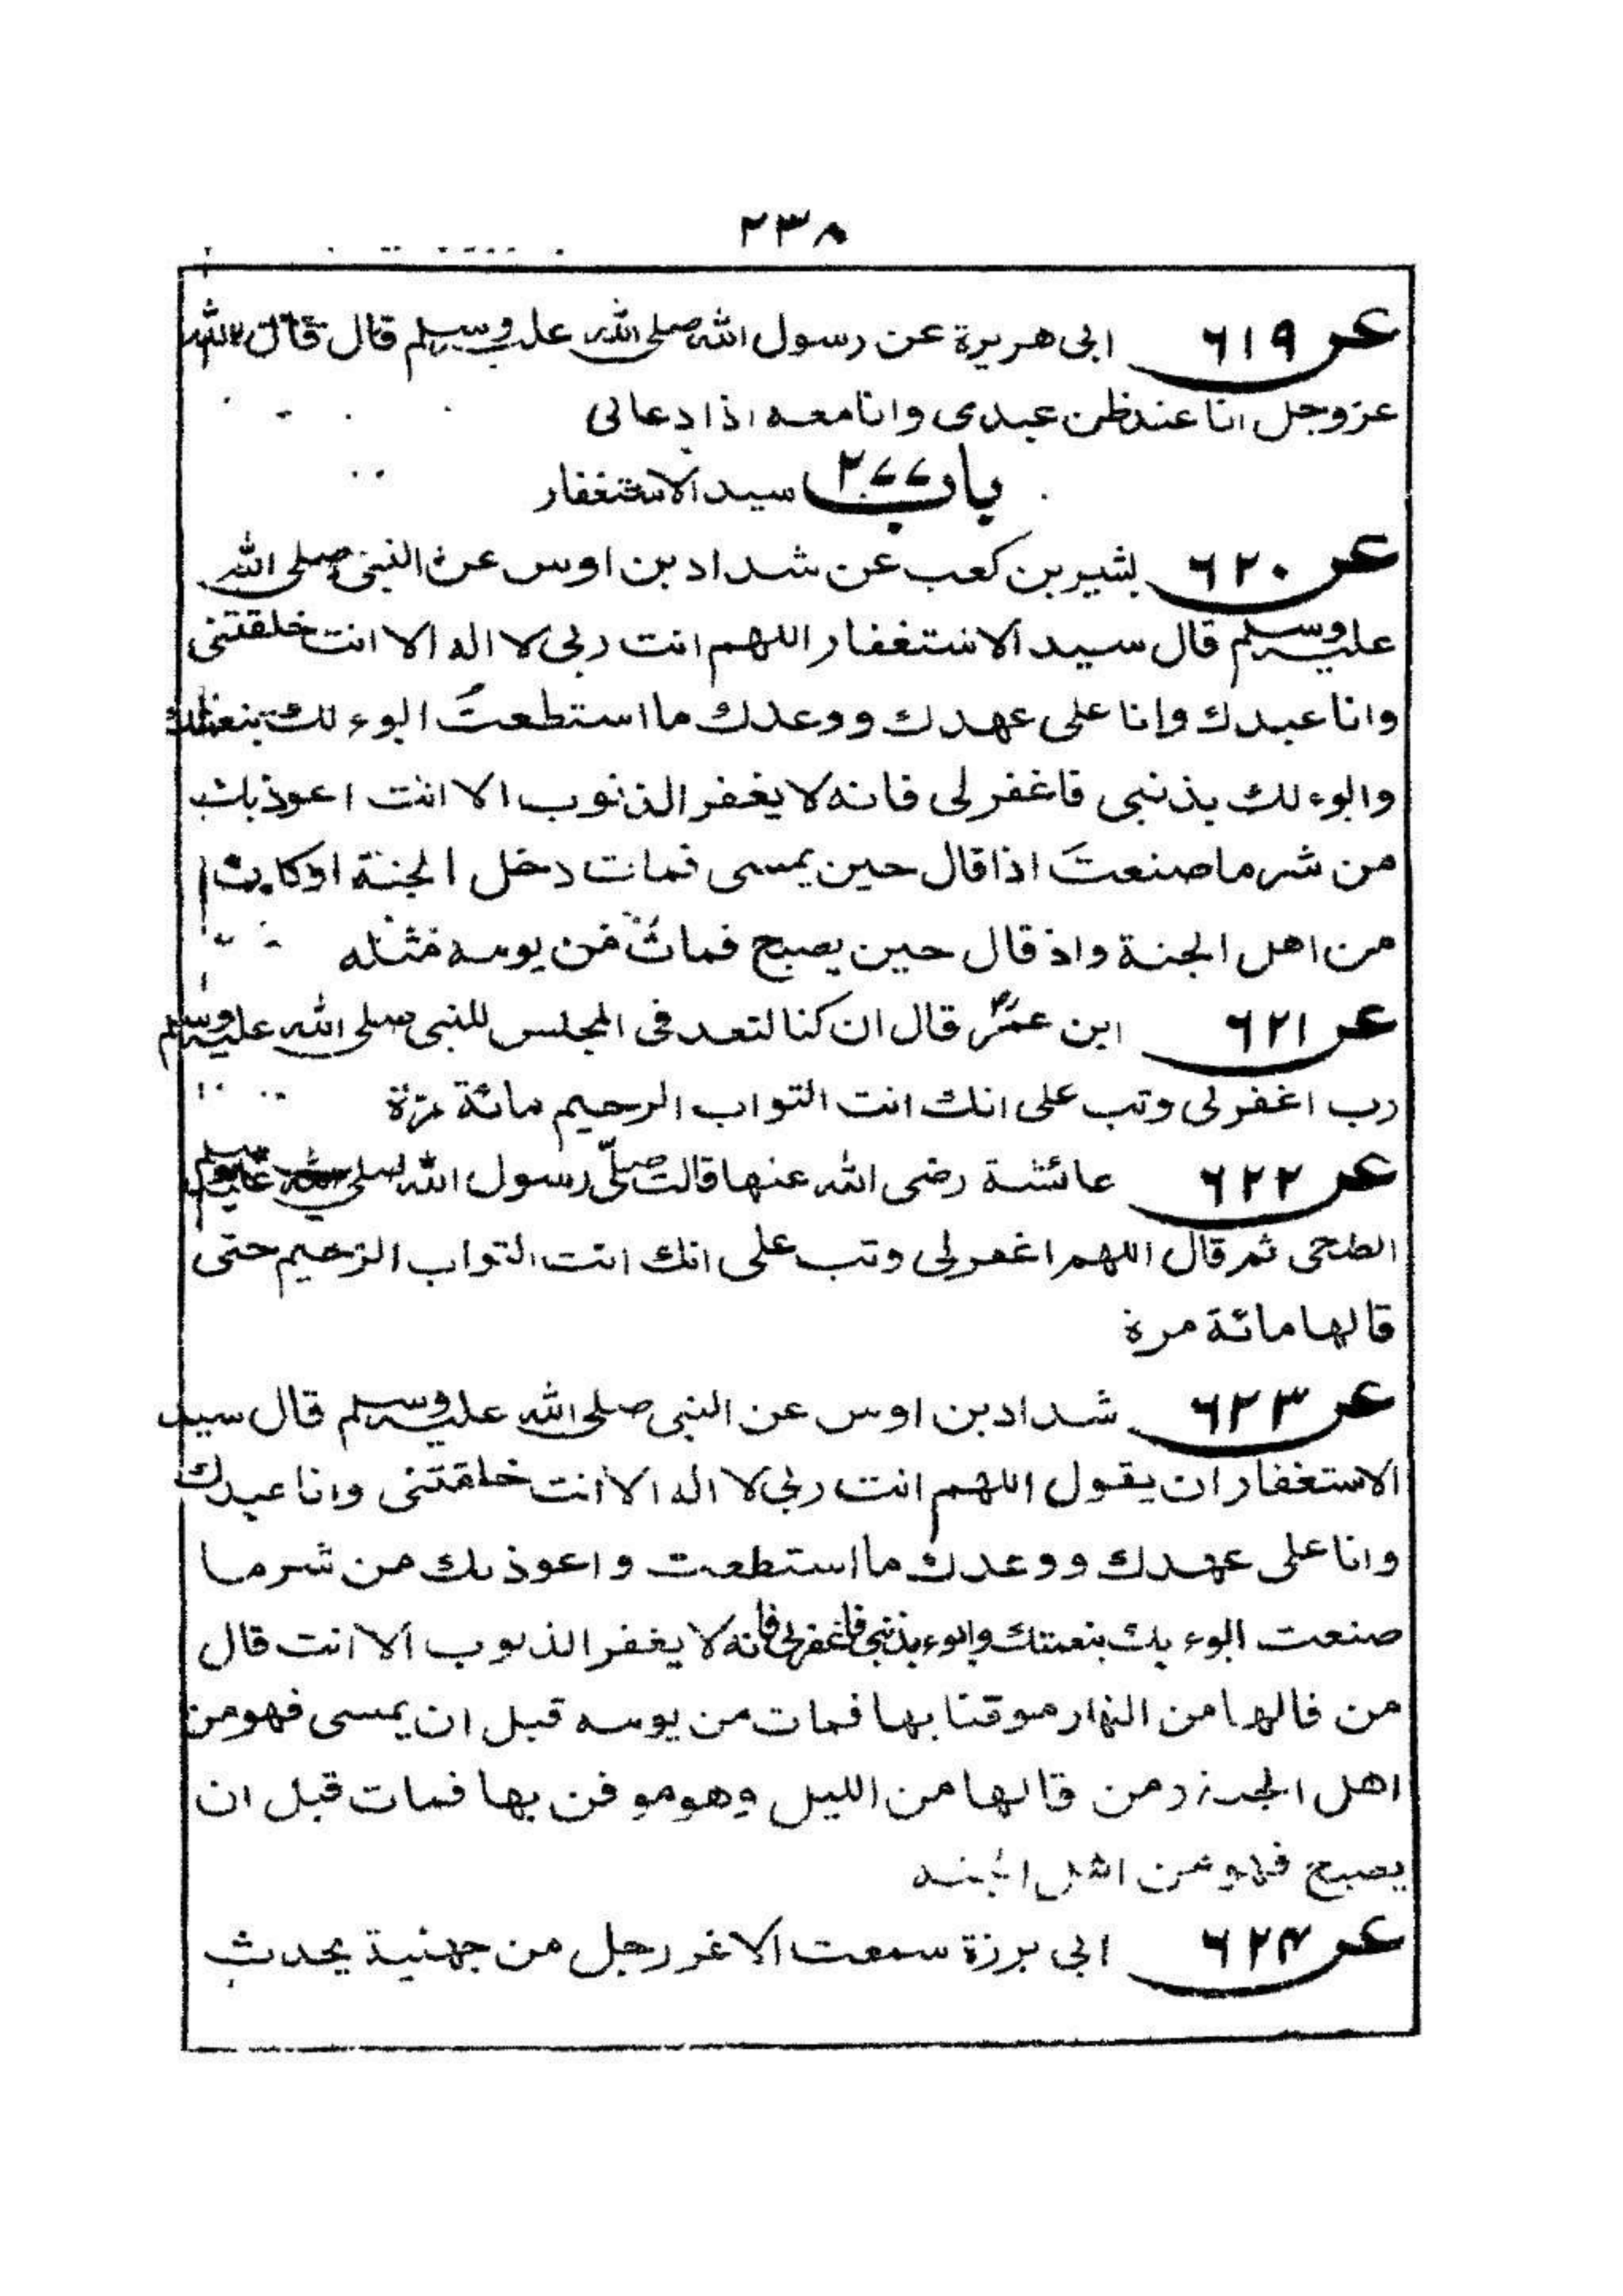 ۲۳۸
عن ۶۱۹ ابی هریرة عن رسول الله صلی الله علیه وسلم قال قال الله
عز وجل انا عند ظن عبدی وانا معه اذا دعانی
باب ۲۷۷ سید الاستغفار
عن ۶۲۰ بشیر بن کعب عن شداد بن اوس عن النبی صلی الله
علیه وسلم قال سید الاستغفار اللهم انت ربی لا اله الا انت خلقتنی
وانا عبدك وانا علی عهدك ووعدك ما استطعت ابوء لك بنعمتك
وابوء لك بذنبی فاغفر لی فانه لا یغفر الذنوب الا انت اعوذ بك
من شر ما صنعت اذا قال حین یمسی فمات دخل الجنة او کان
من اهل الجنة واذ قال حین یصبح فمات من یومه مثله
عن ۶۲۱ ابن عمر قال ان کنا لنعد فی المجلس للنبی صلی الله علیه وسلم
رب اغفر لی وتب علی انك انت التواب الرحیم مائة مرة
عن ۶۲۲ عائشة رضی الله عنها قالت صلّی رسول الله صلی الله علیه وسلم
الضحی ثم قال اللهم اغفر لی وتب علی انك انت التواب الرحیم حتی
قالها مائة مرة
عن ۶۲۳ شداد بن اوس عن النبی صلی الله علیه وسلم قال سید
الاستغفار ان یقول اللهم انت ربی لا اله الا انت خلقتنی وانا عبدك
وانا علی عهدك ووعدك ما استطعت واعوذ بك من شر ما
صنعت ابوء بك بنعمتك وابوء بذنبی فاغفر لی فانه لا یغفر الذنوب الا انت قال
من قالها من النهار موقنا بها فمات من یومه قبل ان یمسی فهو من
اهل الجنة ومن قالها من اللیل وهو موقن بها فمات قبل ان
یصبح فهو من اهل الجنه
عن ۶۲۴ ابی برزة سمعت الاغر رجل من جهنیة یحدث